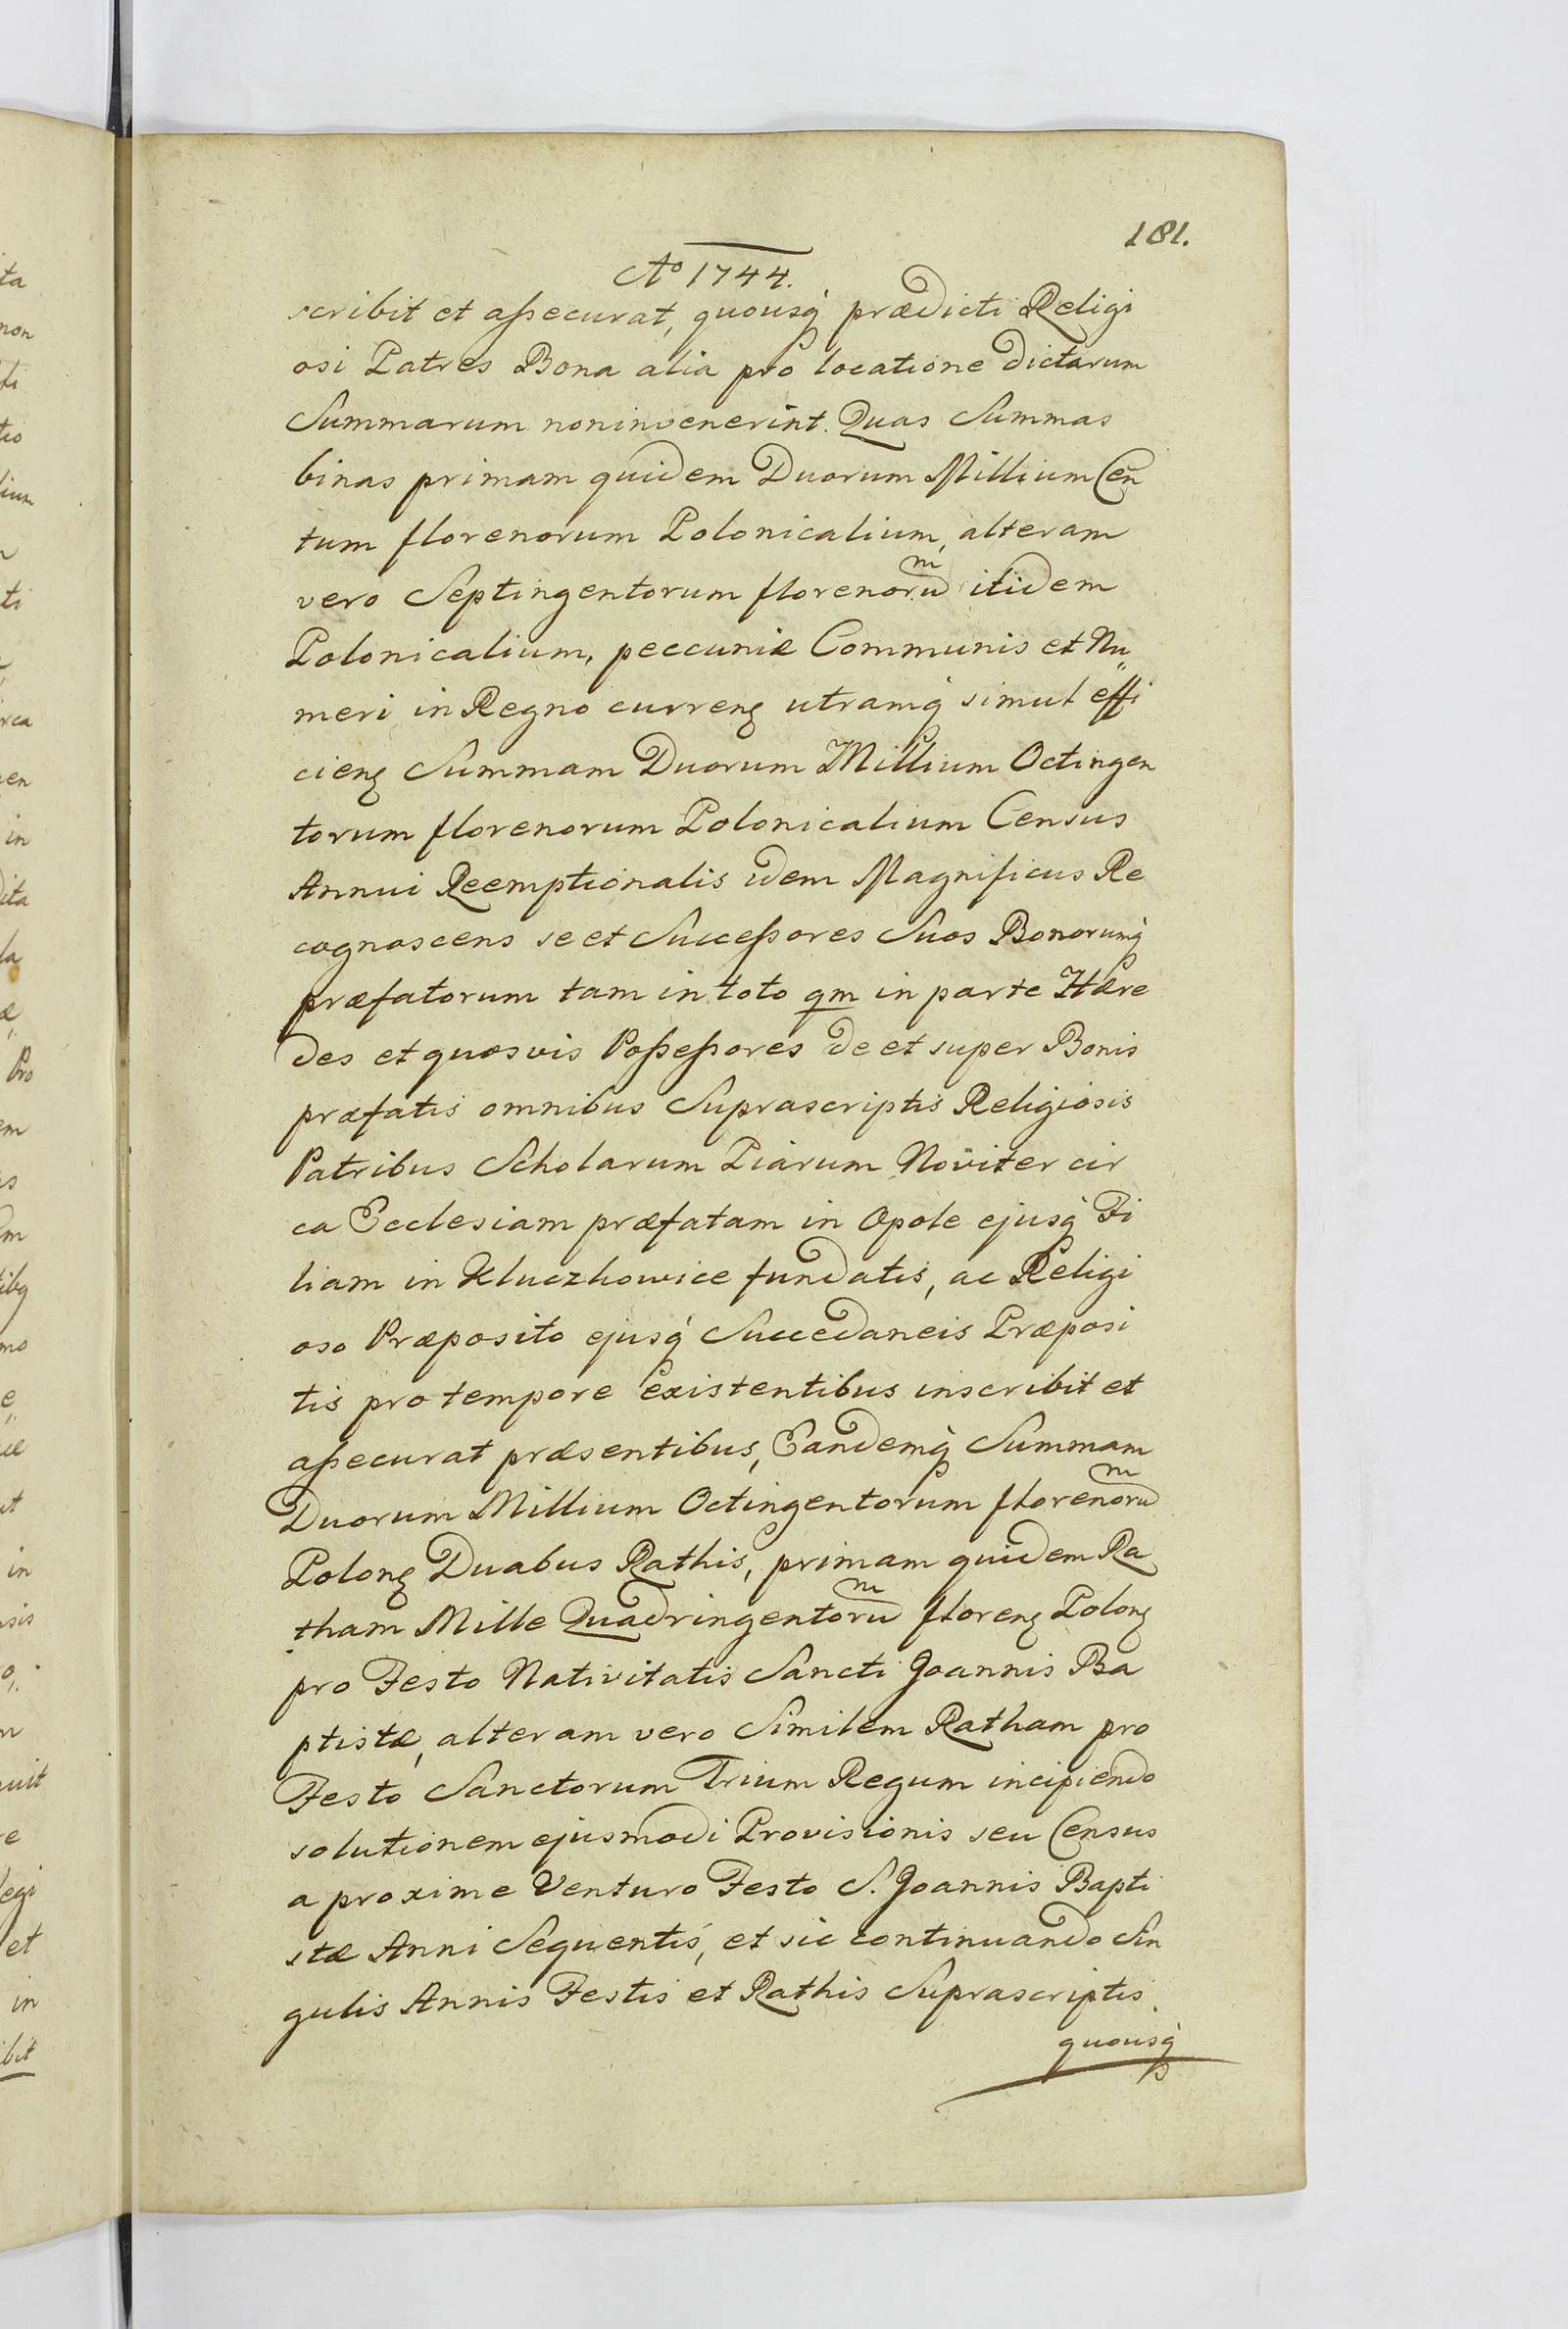 181.
Aо 1744.
scribit et assecurat, quousq prædicti Religi
osi Patres Bona alia pro locatione dictarum
Summarum noninvenerint. Quas Summas
binas primam quidem Duorum Millium Cen
tum florenorum Polonicalium, alteram
vero Septingentorum florenorum itidem
Polonicalium, peccuniæ Communis et Nu„
meri in Regno curren utramq simul effi
cien Summam Duorum Millium Octingen
torum florenorum Polonicalium Census
Annui Reemptionalis idem Magnificus Re
cognoscens se et Successores Suos Bonorumq
præfatorum tam in toto qm in parte Hære
des et quosvis Possessores de et super Bonis
præfatis omnibus Suprascriptis Religiosis
Patribus Scholarum Piarum Noviter cir
ca Ecclesiam præfatam in Opole ejusq Fi
liam in Kluczkowice fundatis, ac Religi
oso Præposito ejusq Succedaneis Præposi
tis pro tempore existentibus inscribit et
assecurat præsentibus, Eandemq Summam
Duorum Millium Octingentorum florenorum
Polon Duabus Rathis, primam quidem Ra
tham Mille Quadringentorum floren Polon
pro Festo Nativitatis Sancti Joannis Ba
ptistæ, alteram vero Similem Ratham pro
Festo Sanctorum Trium Regum incipiendo
solutionem ejusmodi Provisionis seu Census
a proxime Venturo Festo S. Joannis Bapti
stæ Anni Sequentis, et sic continuando Sin
gulis Annis Festis et Rathis Suprascriptis
quousq